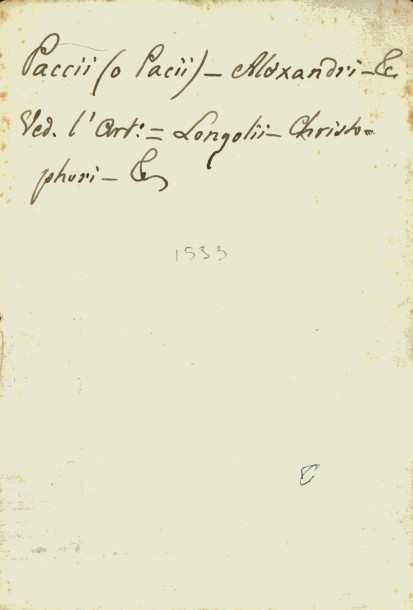 Paccii (o Pacii) – Alexandri – &c
Ved. l' Art.: = Longolii – Christo=
phori – &c
1533
C